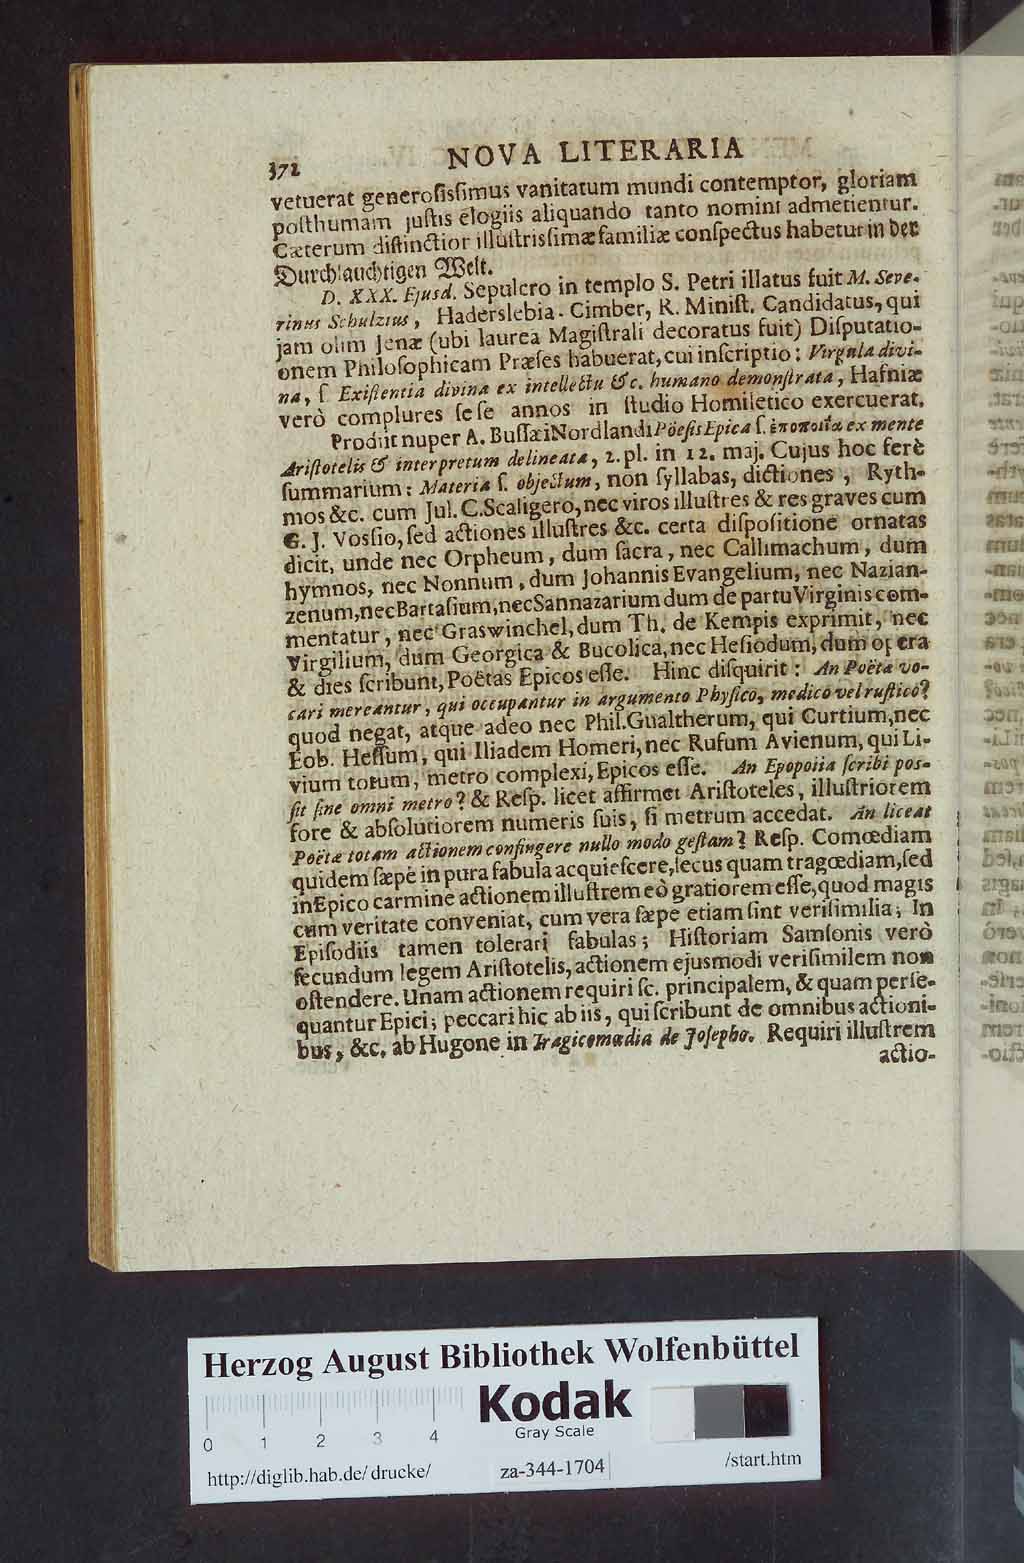 372 NOVA LITERARIA
vetuerat generoſisſimus vanitatum mundi contemptor, gloriam
poſthumam juſtis elogiis aliquando tanto nomini admetientur.
Cæterum diſtinctior illuſtrisſimæ familiæ conſpectus habetur in der
Durchlauchtigen Welt.
D. XXX. Ejusd. Sepulcro in templo S. Petri illatus fuit M. Seve-
rinus Schulzius, Haderslebia-Cimber, R. Miniſt. Candidatus, qui
jam olim Jenæ (ubi laurea Magiſtrali decoratus fuit) Diſputatio-
onem Philoſophicam Præſes habuerat, cui inſcriptio: Virgula divi-
na, ſ. Exiſtentia divina ex intellectu &c. humano demonſtrata, Hafniæ
verò complures ſeſe annos in ſtudio Homiletico exercuerat.
Prodiit nuper A. Buſſæi Nordlandi Pöeſis Epica ſ. ἐποποιΐα ex mente
Ariſtotelis & interpretum delineata, 2. pl. in 12. maj. Cujus hoc ferè
ſummarium: Materia ſ. objectum, non ſyllabas, dictiones, Ryth-
mos &c. cum Jul. C. Scaligero, nec viros illuſtres & res graves cum
G. J. Vosſio, ſed actiones illuſtres &c. certa diſpoſitione ornatas
dicit, unde nec Orpheum, dum ſacra, nec Callimachum, dum
hymnos, nec Nonnum, dum Johannis Evangelium, nec Nazian-
zenum, nec Bartaſium, nec Sannazarium dum de partu Virginis com-
mentatur, nec Graswinchel, dum Th. de Kempis exprimit, nec
Virgilium, dum Georgica & Bucolica, nec Heſiodum, dum opera
& dies ſcribunt, Poëtas Epicos eſſe. Hinc diſquirit: An Poëtæ vo-
cari mereantur, qui occupantur in argumento Phyſico, medico vel ruſtico?
quod negat, atque adeo nec Phil. Gualtherum, qui Curtium, nec
Eob. Heſſum, qui Iliadem Homeri, nec Rufum Avienum, qui Li-
vium totum, metro complexi, Epicos eſſe. An Epopoiia ſcribi pos-
ſit ſine omni metro? & Reſp. licet affirmet Ariſtoteles, illuſtriorem
fore & abſolutiorem numeris ſuis, ſi metrum accedat. An liceat
Poëtæ totam actionem confingere nullo modo geſtam? Reſp. Comœdiam
quidem ſæpè in pura fabula acquieſcere, ſecus quam tragœdiam, ſed
in Epico carmine actionem illuſtrem eò gratiorem eſſe, quod magis
cum veritate conveniat, cum vera ſæpe etiam ſint veriſimilia; In
Epiſodiis tamen tolerari fabulas; Hiſtoriam Samſonis verò
ſecundum legem Ariſtotelis, actionem ejusmodi veriſimilem non
oſtendere. Unam actionem requiri ſc. principalem, & quam perſe-
quantur Epici; peccari hic ab iis, qui ſcribunt de omnibus actioni-
bus, &c, ab Hugone in Tragicomœdia de Joſepho. Requiri illuſtrem
actio-
Herzog August Bibliothek Wolfenbüttel
Kodak
Gray Scale
0 1 2 3 4
http://diglib.hab.de/drucke/ za-344-1704 /start.htm